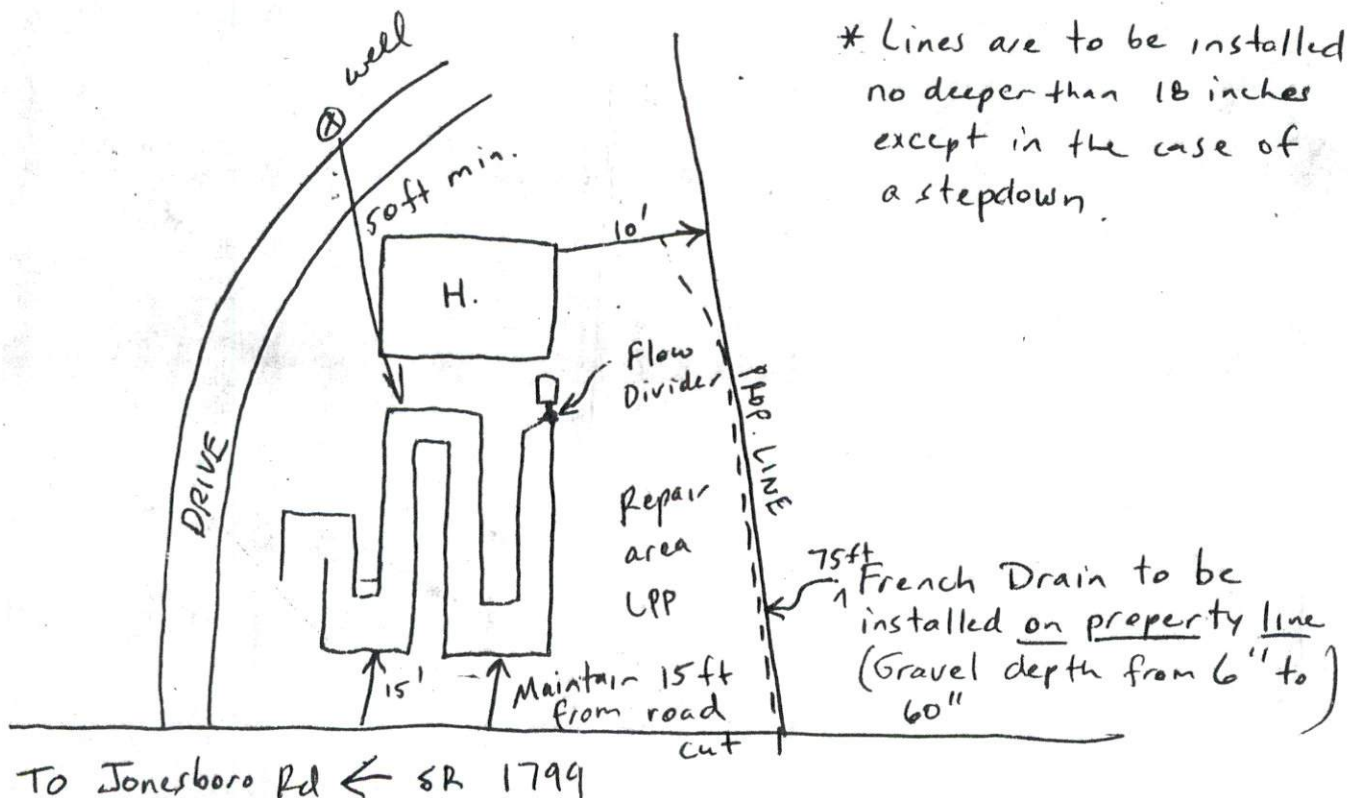 well
* Lines are to be installed
no deeper than 18 inches
except in the case of
a stepdown.
50ft min.
10'
H.
Flow
Divider
PROP. LINE
DRIVE
Repair
area
LPP
75ft
French Drain to be
installed on property line
(Gravel depth from 6" to
60")
15'
Maintain 15ft
from road
cut
To Jonesboro Rd ← SR 1799